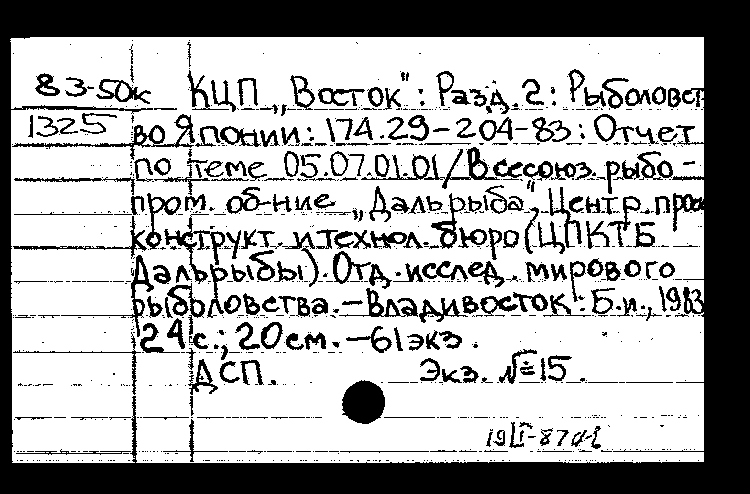 83-50к КЦП „Восток": Разд. 2: Рыболовст
1325 во Японии: 174.29-204-83: Отчет
по теме 05.07.01.01/Всесоюз. рыбо-
пром. об-ние „Дальрыба", Центр. прое
конструкт. и технол. бюро (ЦПКТБ
Дальрыбы). Отд. исслед. мирового
рыболовства.-Владивосток: Б.и., 1983
24 с.; 20 см. -61 экз.
ДСП. Экз. №=15.